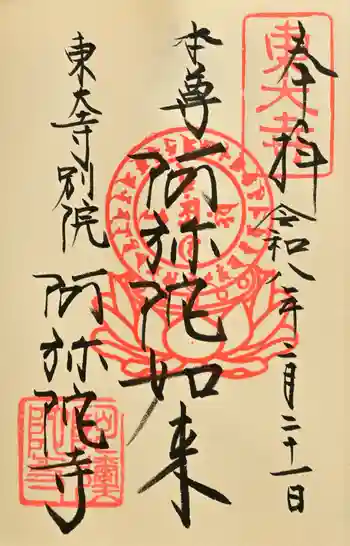 奉拝
令和八年二月二十一日
東大寺
本尊
阿弥陀如来
東大寺別院
阿弥陀寺